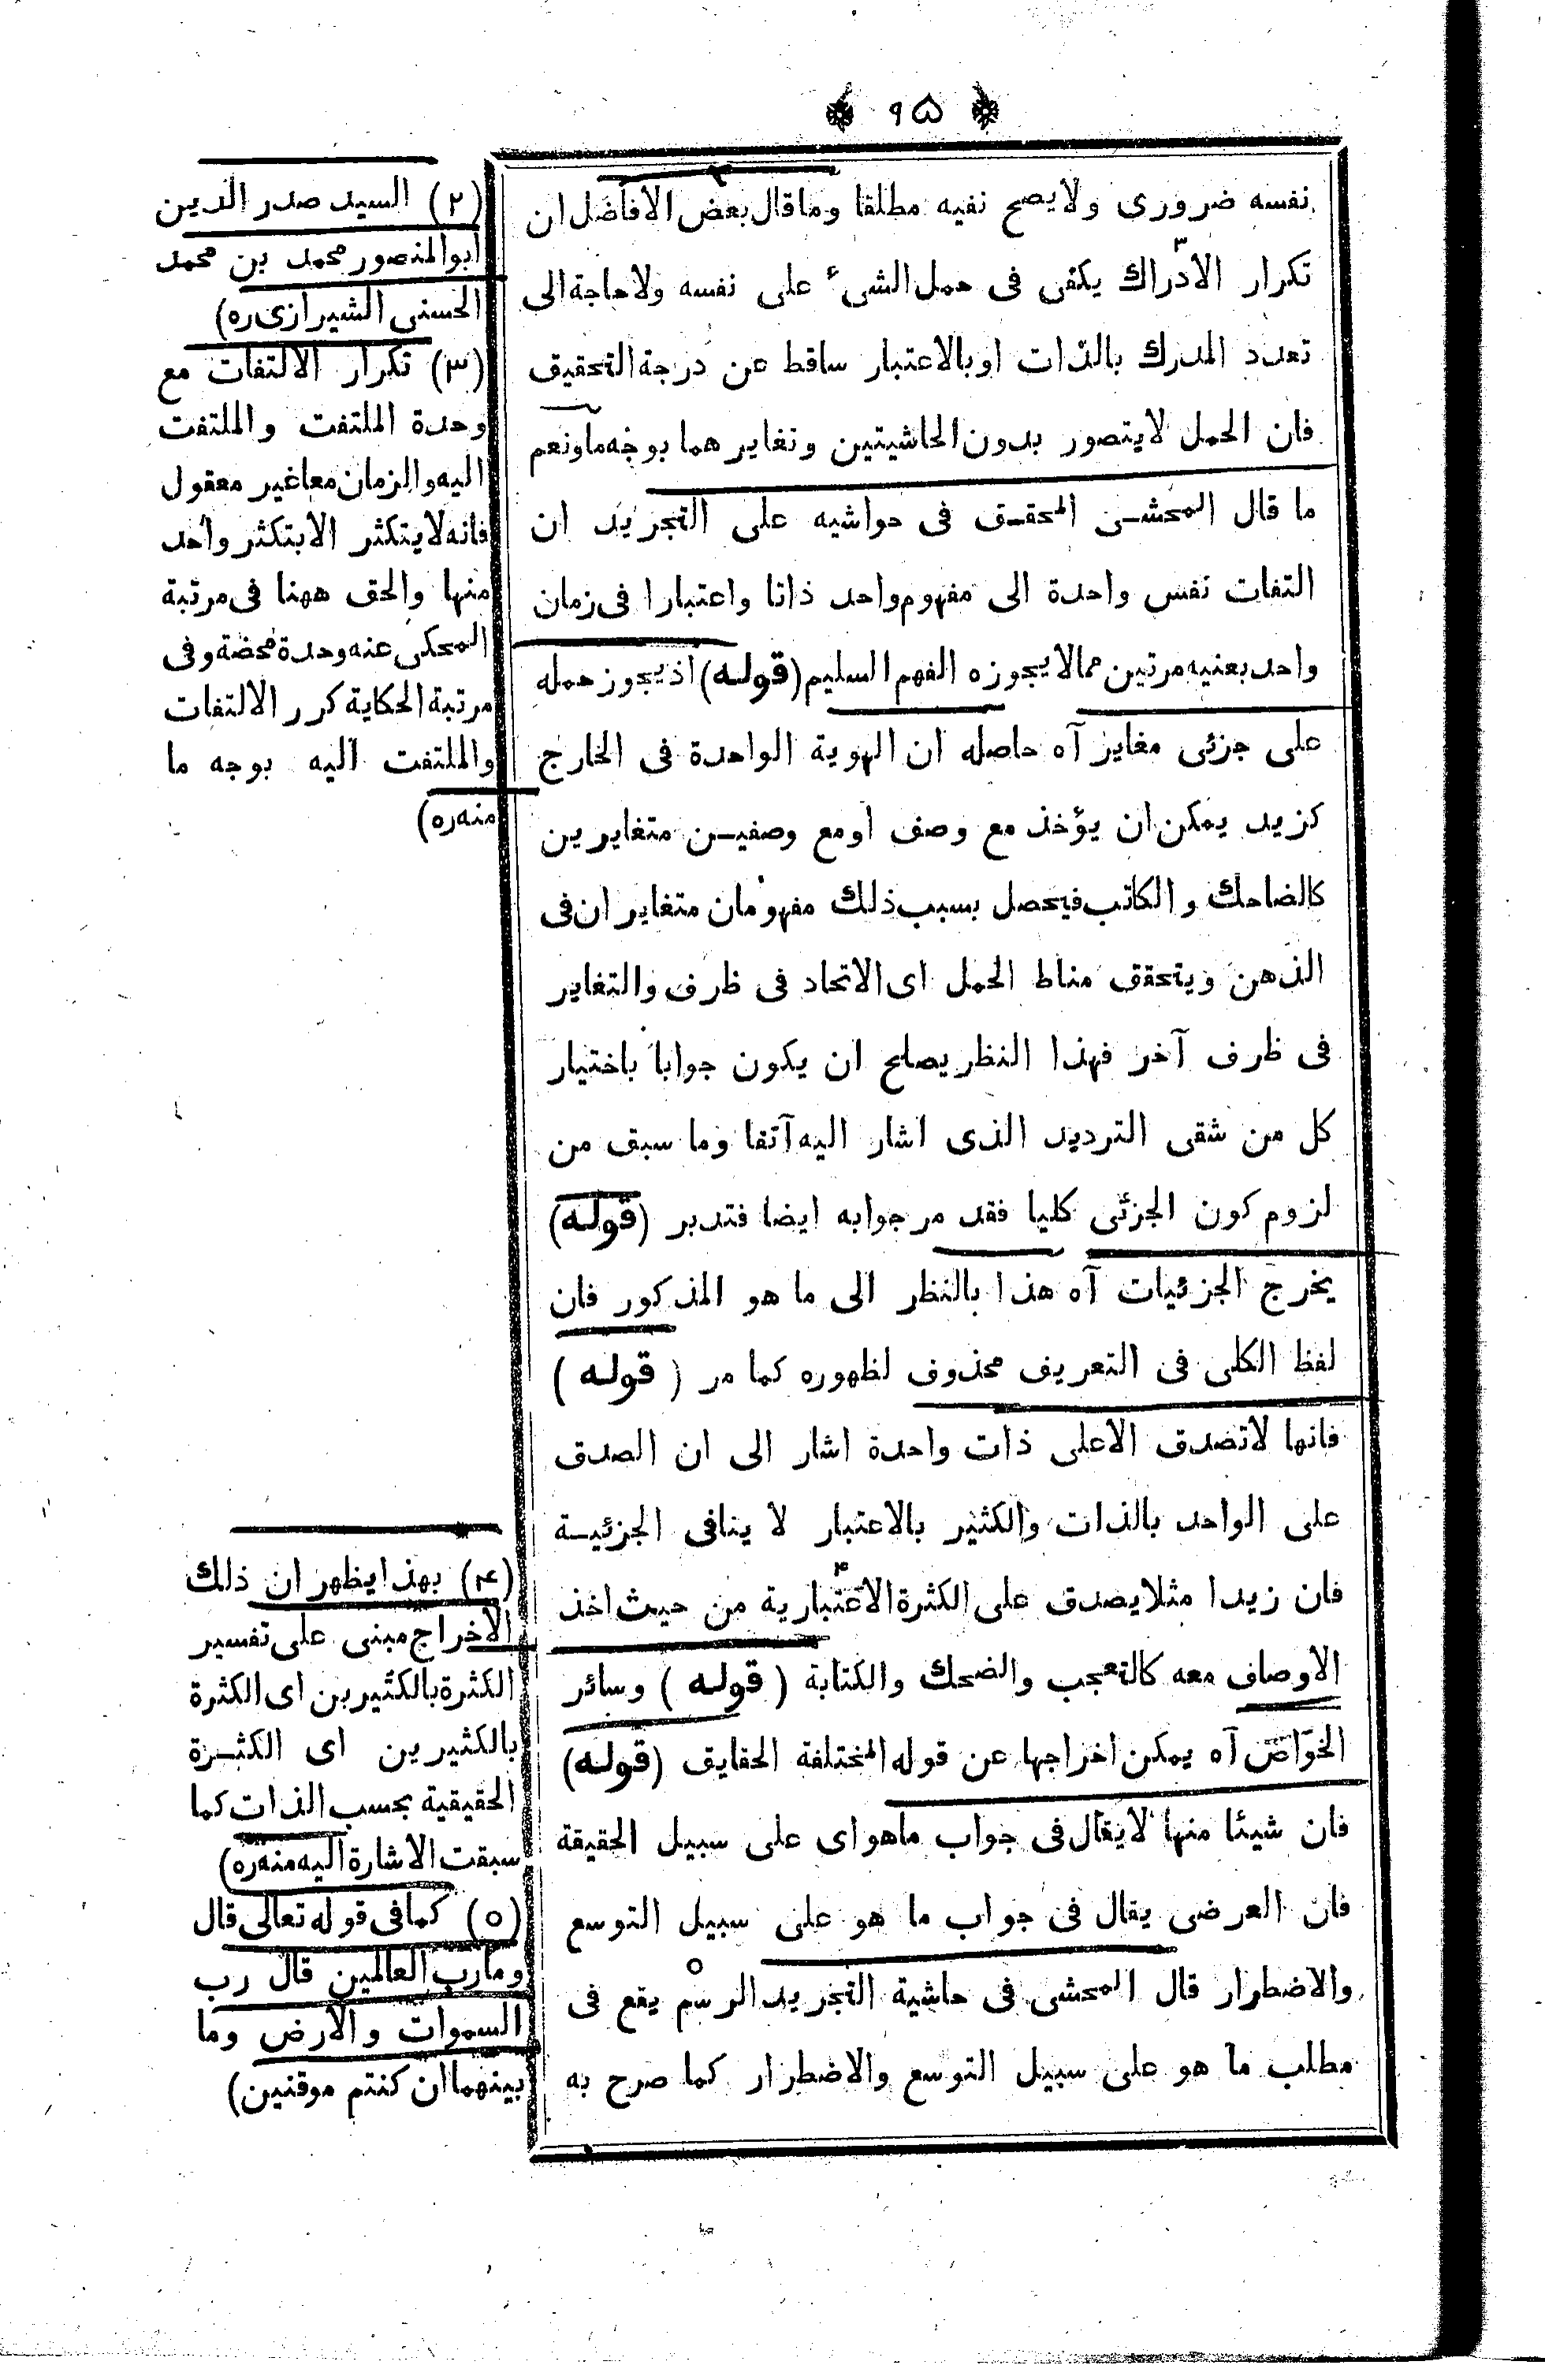 ٩٥
نفسه ضروری ولایصح نفیه مطلقا وماقال بعض الافاضل ان
تکرار الادراك یکفی فی حمل الشیء علی نفسه ولاحاجة الی
تعدد المدرك بالذات اوبالاعتبار ساقط عن درجة التحقیق
فان الحمل لایتصور بدون الحاشیتین وتغایر هما بوجه ماونعم
ما قال المحشی المحقق فی حواشیه علی التجرید ان
التفات نفس واحدة الی مفهوم واحد ذاتا واعتبارا فی زمان
واحد بعنیه مرتین ممالایجوزه الفهم السلیم (قوله) اذیجوز حمله
علی جزئی مغایر آه حاصله ان الهویة الواحدة فی الخارج
کزید یمکن ان یؤخذ مع وصف اومع وصفین متغایرین
کالضاحك والکاتب فیحصل بسبب ذلك مفهومان متغایران فی
الذهن ویتحقق مناط الحمل ای الاتحاد فی ظرف والتغایر
فی ظرف آخر فهذا النظر یصلح ان یکون جوابا باختیار
کل من شقی التردید الذی اشار الیه آنفا وما سبق من
لزوم کون الجزئی کلیا فقد مر جوابه ایضا فتدبر (قوله)
یخرج الجزئیات آه هذا بالنظر الی ما هو المذکور فان
لفظ الکلی فی التعریف محذوف لظهوره کما مر ( قوله )
فانها لاتصدق الاعلی ذات واحدة اشار الی ان الصدق
علی الواحد بالذات والکثیر بالاعتبار لا ینافی الجزئیة
فان زیدا مثلا یصدق علی الکثرة الاعتباریة ۴ من حیث اخذ
الاوصاف معه کالتعجب والضحك والکتابة ( قوله ) وسائر
الخواص آه یمکن اخراجها عن قوله المختلفة الحقایق (قوله)
فان شیئا منها لایقال فی جواب ماهو ای علی سبیل الحقیقة
فان العرضی یقال فی جواب ما هو علی سبیل التوسع
والاضطرار قال المحشی فی حاشیة التجرید الرسم ٥ یقع فی
مطلب ما هو علی سبیل التوسع والاضطرار کما صرح به
(٢) السید صدر الدین
ابوالمنصور محمد بن محمد
الحسنی الشیرازی ره)
(٣) تکرار الالتفات مع
وحدة الملتفت والملتفت
الیه والزمان معاغیر معقول
فانه لایتکثر الابتکثر واحد
منها والحق ههنا فی مرتبة
المحکی عنه وحدة محضة وفی
مرتبة الحکایة کرر الالتفات
والملتفت الیه بوجه ما
منه ره)
(۴) بهذا یظهر ان ذلك
الاخراج مبنی علی تفسیر
الکثرة بالکثیرین ای الکثرة
بالکثیرین ای الکثرة
الحقیقیة بحسب الذات کما
سبقت الاشارة الیه منه ره)
(٥) کمافی قوله تعالی قال
ومارب العالمین قال رب
السموات والارض وما
بینهما ان کنتم موقنین)